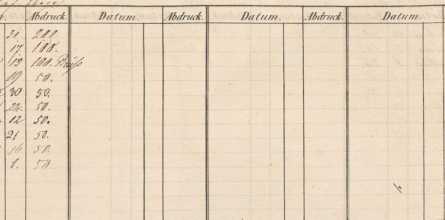 Abdruck. Datum. Abdruck. Datum. Abdruck. Datum.
20 200.
17. 100.
13 100.
19 50.
30 50.
22. 50.
12 50.
21 50.
16 50.
8. 50